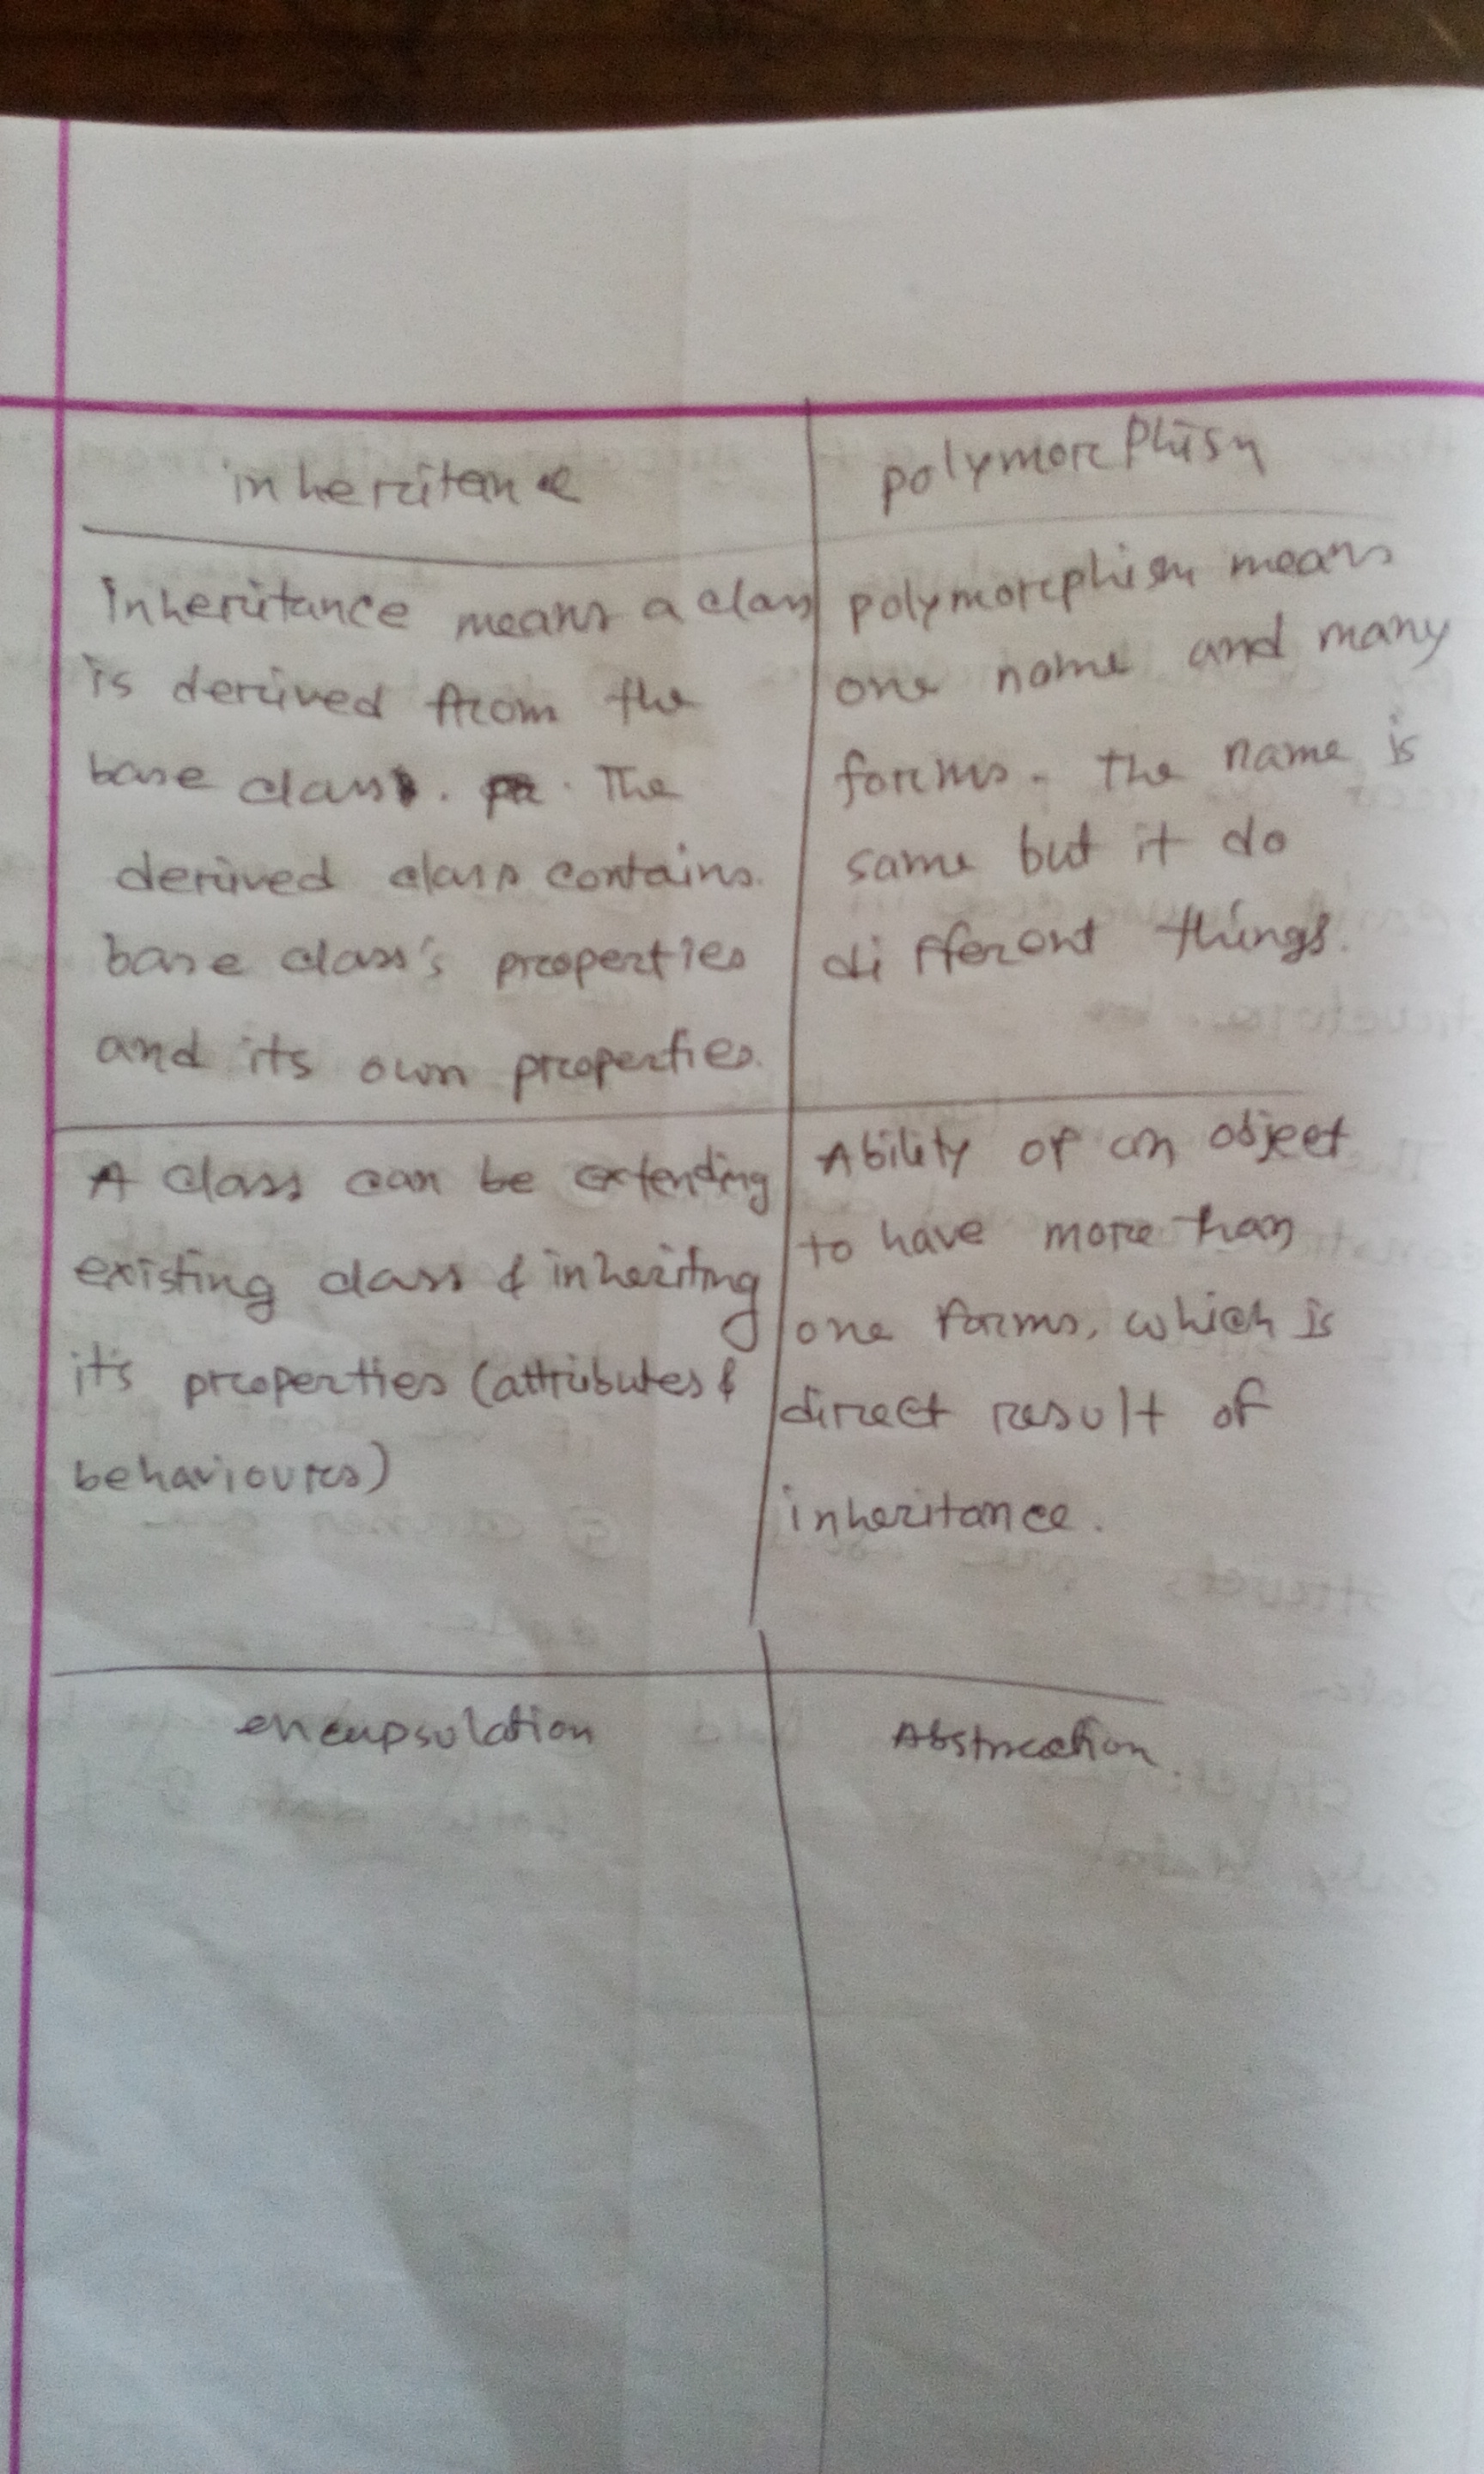 inheritance
inheritance means a class
is derived from the
base class. The
derived class contains
base class's properties
and its own properties.
polymorphism
polymorphism means
one name and many
forms. The name is
same but it do
different things.
A class can be extending
existing class & inheriting
it's properties (attributes &
behaviours)
Ability of an object
to have more than
one forms, which is
direct result of
inheritance.
encapsulation
Abstraction.